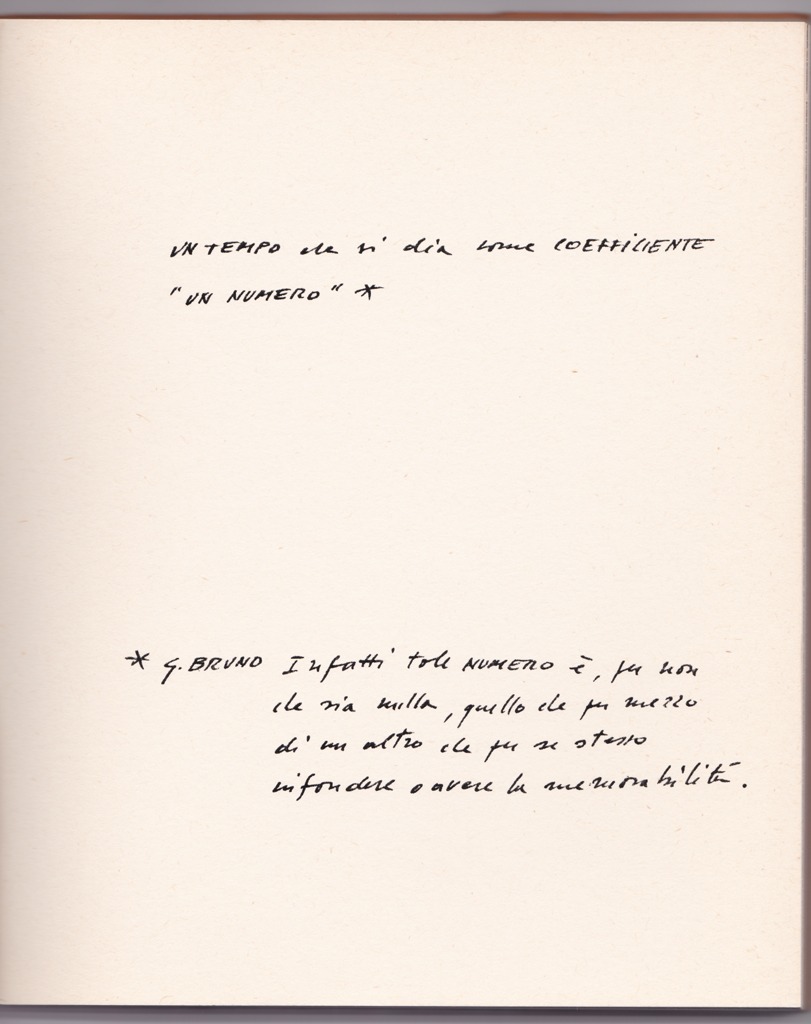 UN TEMPO che si dia come COEFFICIENTE
"UN NUMERO" *
* G. BRUNO Infatti tale NUMERO è, per non
che sia nulla, quello che per mezzo
di un altro che per se stesso
infondere o avere la memorabilità.